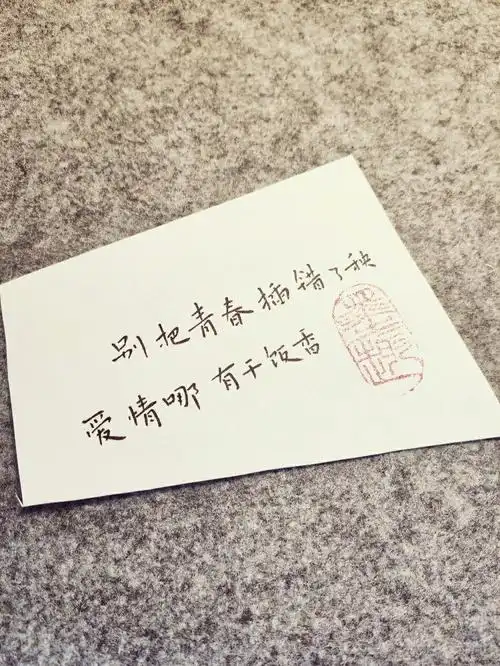 别把青春插错了秧
爱情哪有干饭香